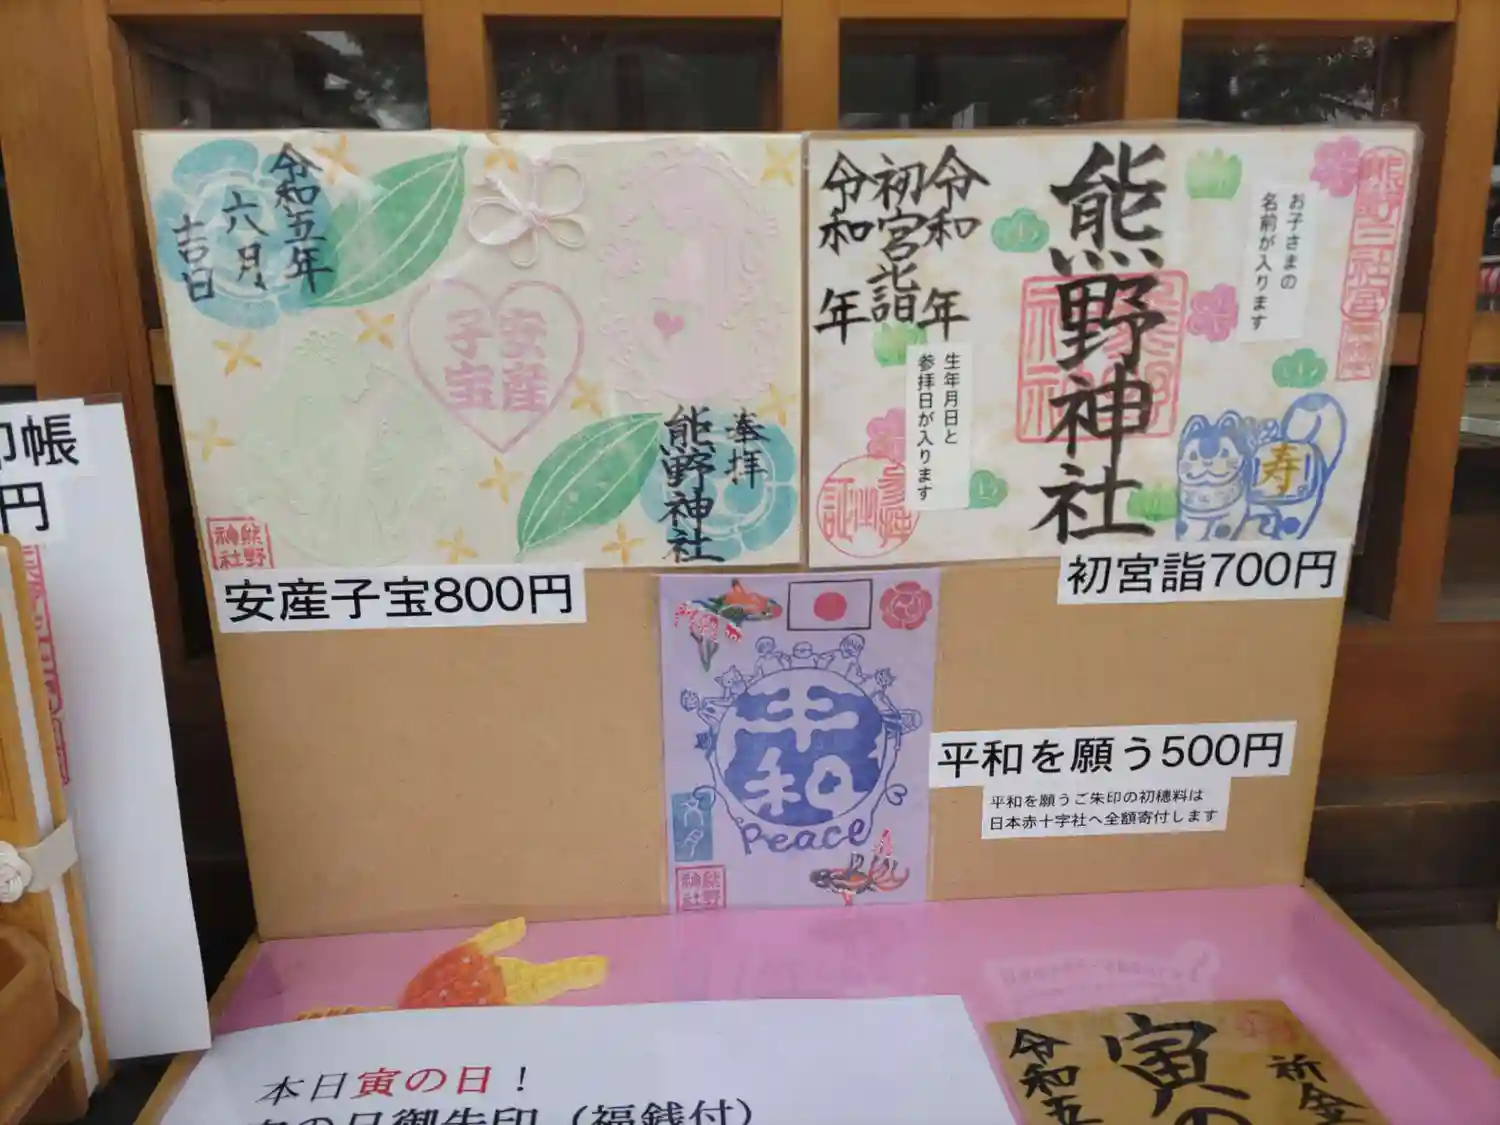 令和五年
六月
吉日
安産
子宝
奉拝
熊野神社
熊野
神社
安産子宝800円
令和 年
初宮詣
令和 年
熊野神社
お子さまの
名前が入ります
生年月日と
参拝日が入ります
寿
初宮詣700円
平和
Peace
熊野
神社
平和を願う500円
平和を願うご朱印の初穂料は
日本赤十字社へ全額寄付します
印帳
円
本日寅の日！
の日御朱印（福銭付）
寅の
令和五
祈